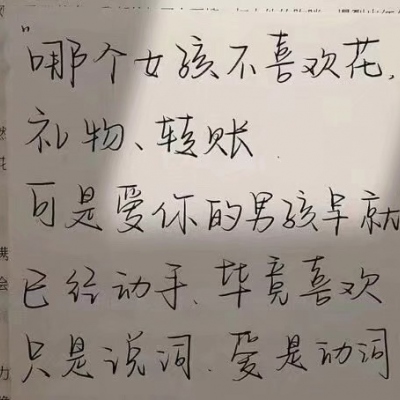 "哪个女孩不喜欢花,
礼物、转账
可是爱你的男孩早就
已经动手、毕竟喜欢
只是说词、爱是动词